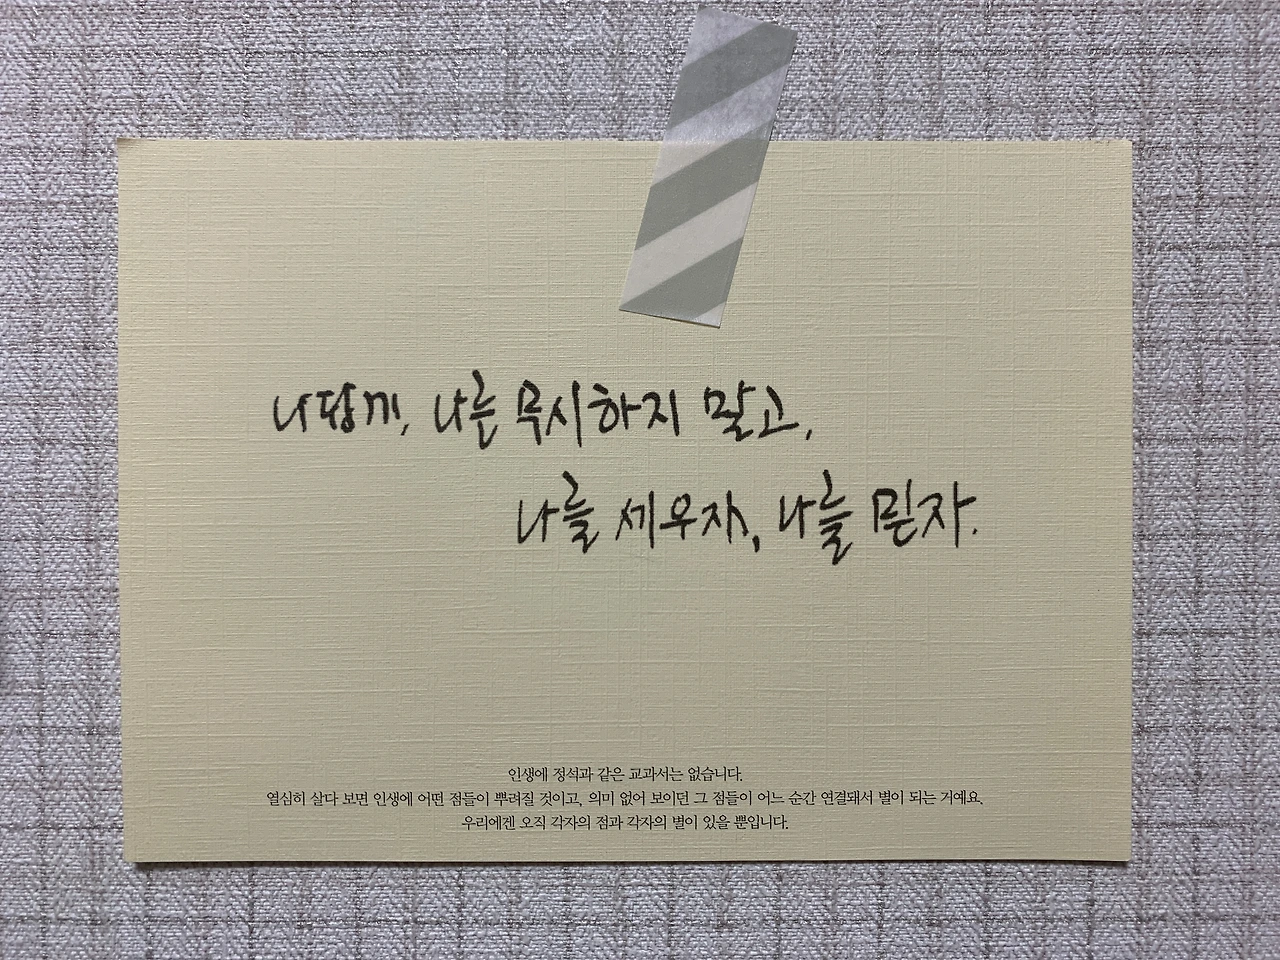 나답게, 나를 무시하지 말고,
나를 세우자, 나를 믿자.
인생에 정석과 같은 교과서는 없습니다.
열심히 살다 보면 인생에 어떤 점들이 뿌려질 것이고, 의미 없어 보이던 그 점들이 어느 순간 연결돼서 별이 되는 거예요.
우리에겐 오직 각자의 점과 각자의 별이 있을 뿐입니다.